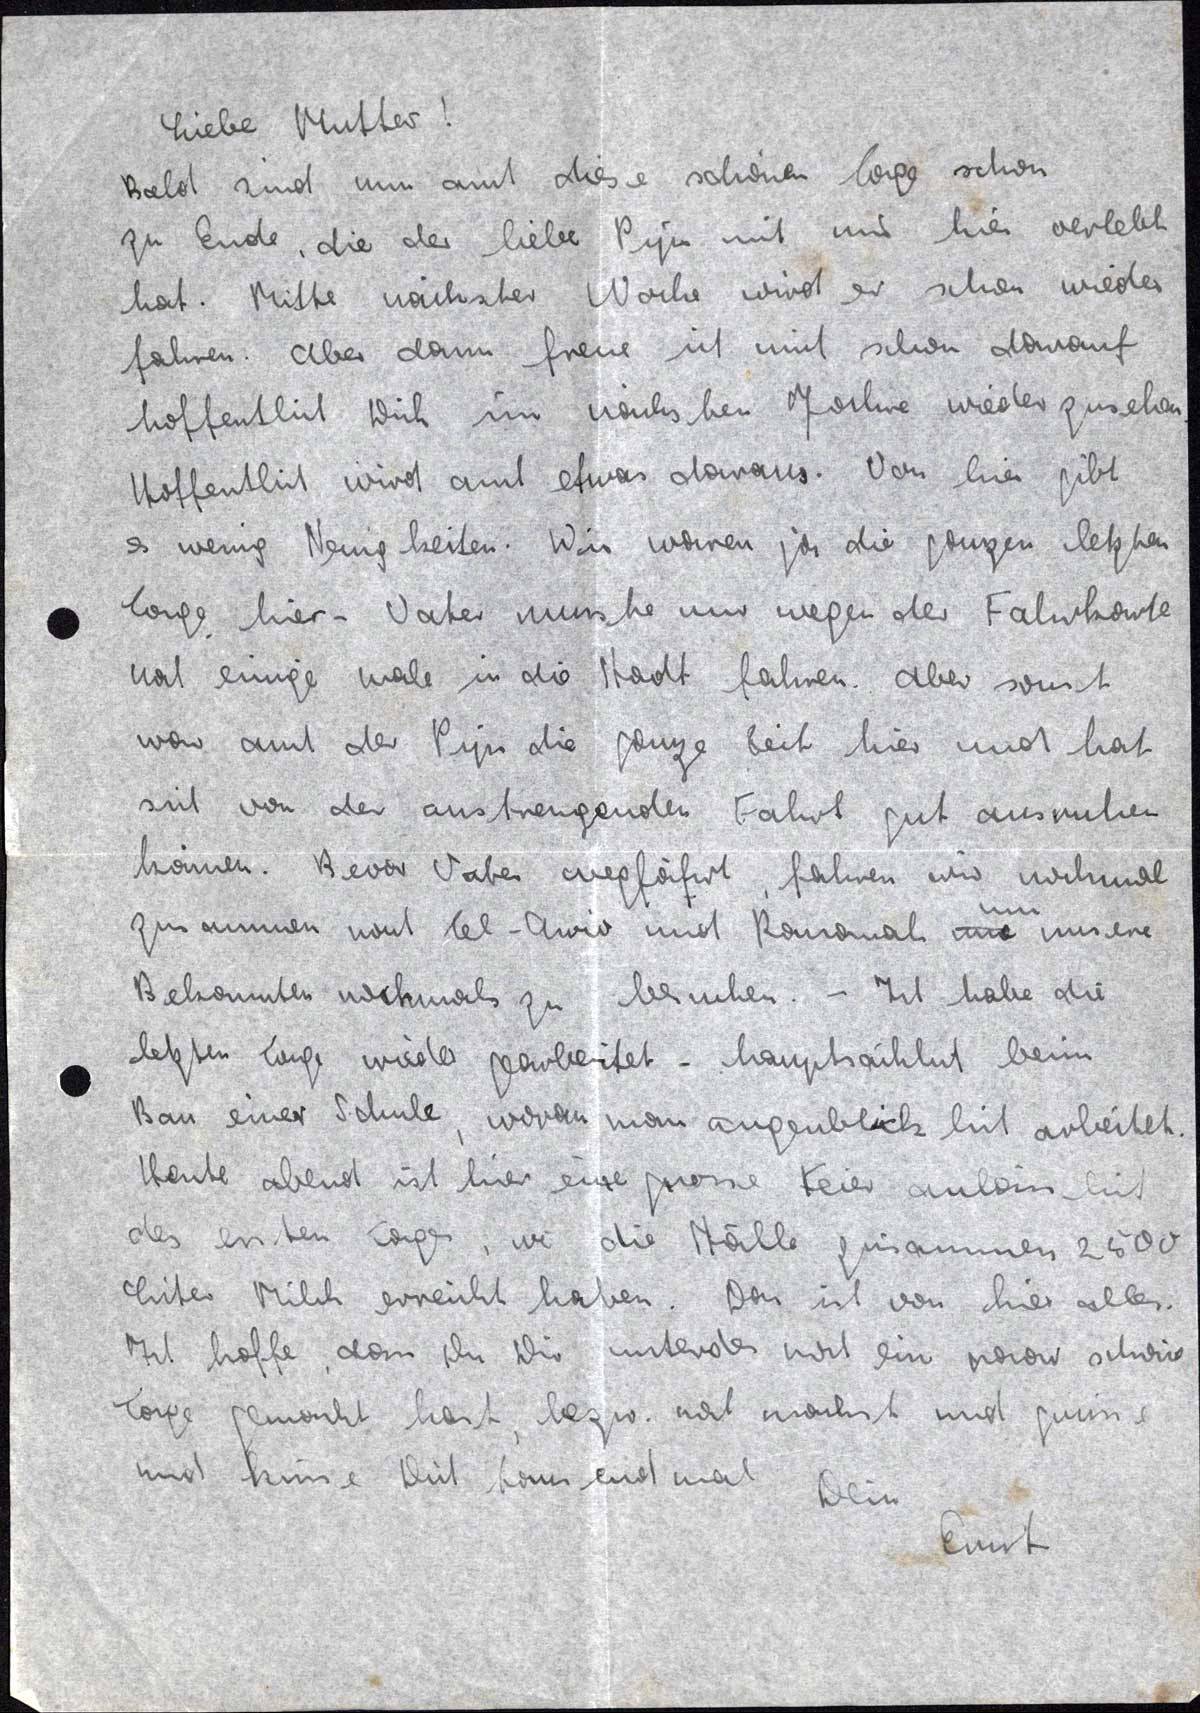 Liebe Mutter!
Bald sind nun auch diese schönen Tage schon
zu Ende, die der liebe Pips mit mir hier verlebt
hat. Mitte nächster Woche wird er schon wieder
fahren. Aber dann freue ich mich schon darauf
hoffentlich Dich im nächsten Jahre wiederzusehen.
Hoffentlich wird auch etwas daraus. Von hier gibt
es wenig Neuigkeiten. Wir waren ja die ganzen letzten
Tage hier - Vater musste nur wegen der Fahrkarte
noch einige male in die Stadt fahren. Aber sonst
war auch der Pips die ganze Zeit hier und hat
sich von der anstrengenden Fahrt gut ausruhen
können. Bevor Vater wegfährt, fahren wir nochmal
zusammen nach Tel-Awiv und Ramanah um unsere
Bekannten nochmals zu besuchen. - Ich habe die
letzten Tage wieder gearbeitet - hauptsächlich beim
Bau einer Schule, woran man augenblicklich arbeitet.
Heute abend ist hier eine grosse Feier anlässlich
des ersten Tages, wo die Ställe zusammen 2500
Liter Milch erreicht haben. Das ist von hier alles.
Ich hoffe, dass Du Dir unterdes noch ein paar schöne
Tage gemacht hast, bezw. noch machst und grüsse
und küsse Dich tausendmal
Dein
Ernst